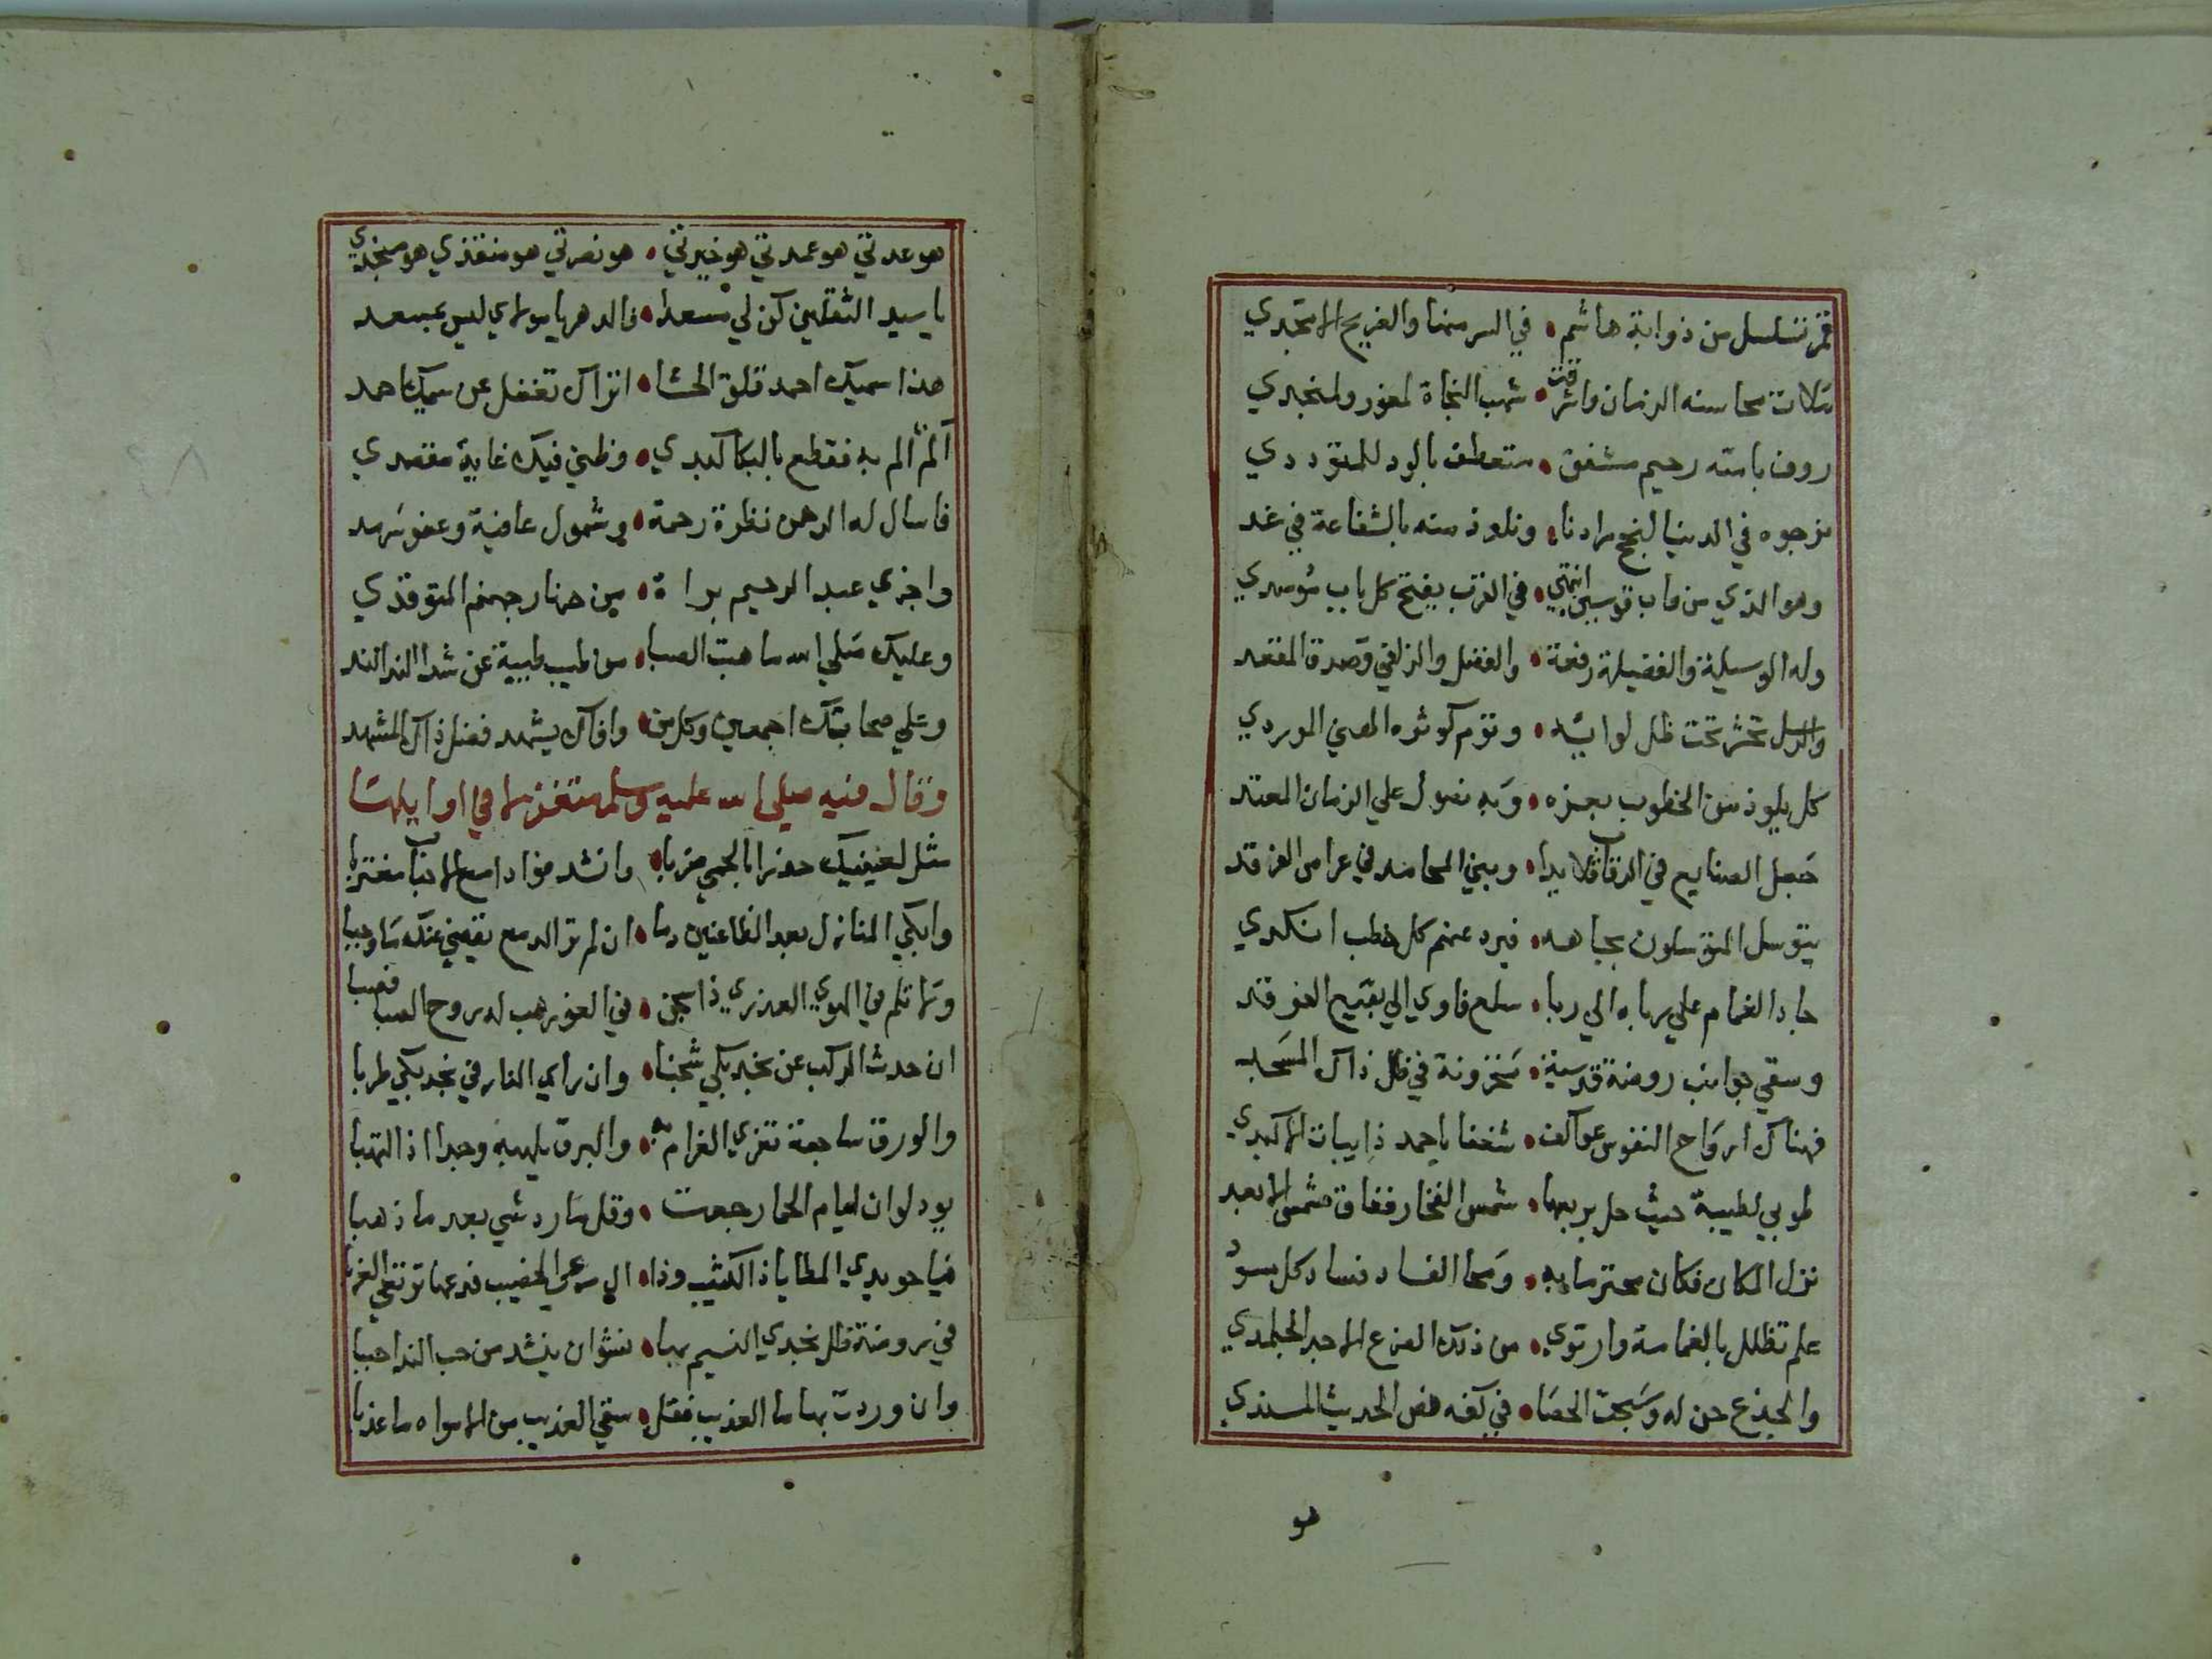 قمر تسلسل من ذوابة هاشم • في السر منها والغريح الامجدي
ملات محاسنه الزمان واشرقت • شهب النجاة لمغور ولمنجدي
روف بامته رحيم مشفق • متعطف بالود للمتوددي
نرجوه في الدنيا لنجح مرادنا • ونلوذ منه بالشفاعة في غد
وهو الذي من قاب قوسين انتهي • في القرب يفتح كل باب موصدي
وله الوسيلة والفضيلة رفعة • والفضل والزلفي وصدق المقعد
والرسل تحشر تحت ظل لوايه • وتؤم كوثره الهني الموردي
كل يلوذ من الخطوب بعزه • وبه نصول علي الزمان المعتد
جعل الصنايع في الرقاب قلايدا • وبني المحامد في عراص الفرقد
يتوسل المتوسلون بجاهه • فيرد عنهم كل خطب انكدي
جاد الغمام علي رباه الي ربا • سلع فاوي الي بقيع الغرقد
وسقي جوانب روضة قدسية • مخزونة في ظل ذاك المسجد
فهناك ارواح النفوس عواكف • شغفا باحمد ذايبات الاكبدي
طوبي لطيبة حيث حل بربعها • شمس الفخار ففاق شمس الابعد
نزل المكان فكان محترما به • ومحا الفساد فساد كل مسود
علم تظلل بالغمامة وارتوي • من ذلك الفرع الاحد الجلمدي
والجذع حن له وسبحت الحصا • في كفه فض الحديث المسندي
هو
هو عدتي هو عمدتي هو خيرتي • هو نصرتي هو منقذي هو منجدي
يا سيد الثقلين كن لي مسعدا • فالدهر يا مولاي ليس بمسعد
هذا سميك احمد قلق الحشا • اتراك تغفل عن سميك احمد
الم الم به فقطع بالبكا كبدي • وظني فيك غاية مقصدي
فاسال له الرحمن نظرة رحمة • وشمول عافية وعفو سرمد
واجزي عبد الرحيم براة • من حر نار جهنم المتوقدي
وعليك صلي الله ما هبت الصبا • من طيب طيبة عن شذا الند الند
وعلي صحابتك اجمعين وكل من • وافاك يشهد فضل ذاك المشهد
وقال فيه صلي الله عليه وسلم متغزلا في اوايلها
مثل لعينيك حدنرانا بالحمي ضربا • وانشد فوادا مع الاحباب مغتربا
وابكي المنازل بعد الظاعنين دما • ان لم تر الدمع يقضي عنك ما وجبا
ولا تلم في الهوي العذري ذا شجن • في الغور هب له روح الصبا فصبا
ان حدث الركب عن نجد بكي شجنا • وان راي النار في نجد بكي طربا
والورق ساجعة تغري الغرام به • والبرق يلهبه وجدا اذ التهبا
يود لو ان ايام الحما رجعت • وقل ما رد شي بعد ما ذهبا
فيا حويدي المطايا ذا الكثيب وذا • ال مرعي الخصيب فدعها ترتعي الغربا
في روضة ظل نجدي النسيم بها • نشوان ينشد من حب الندا حببا
وان وردت بها ما العذيب فقل • سقي العذيب من الامواه ما عذبا